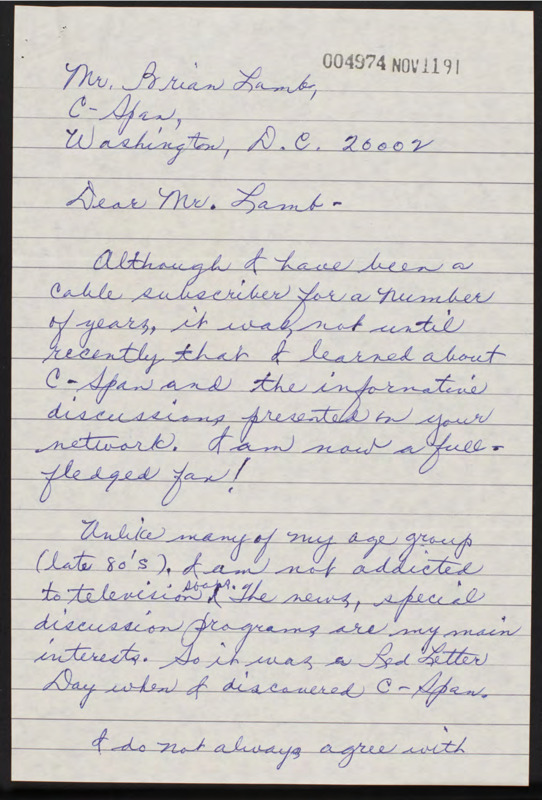 004974 NOV 11 91
Mr. Brian Lamb,
C-Span,
Washington, D.C. 20002
Dear Mr. Lamb -
Although I have been a
cable subscriber for a number
of years, it was not until
recently that I learned about
C-Span and the informative
discussions presented on your
network. I am now a full-
fledged fan!
Unlike many of my age group
(late 80's). I am not addicted
to television soaps. The news, special
discussion programs are my main
interests. So it was a Red Letter
Day when I discovered C-Span.
I do not always agree with